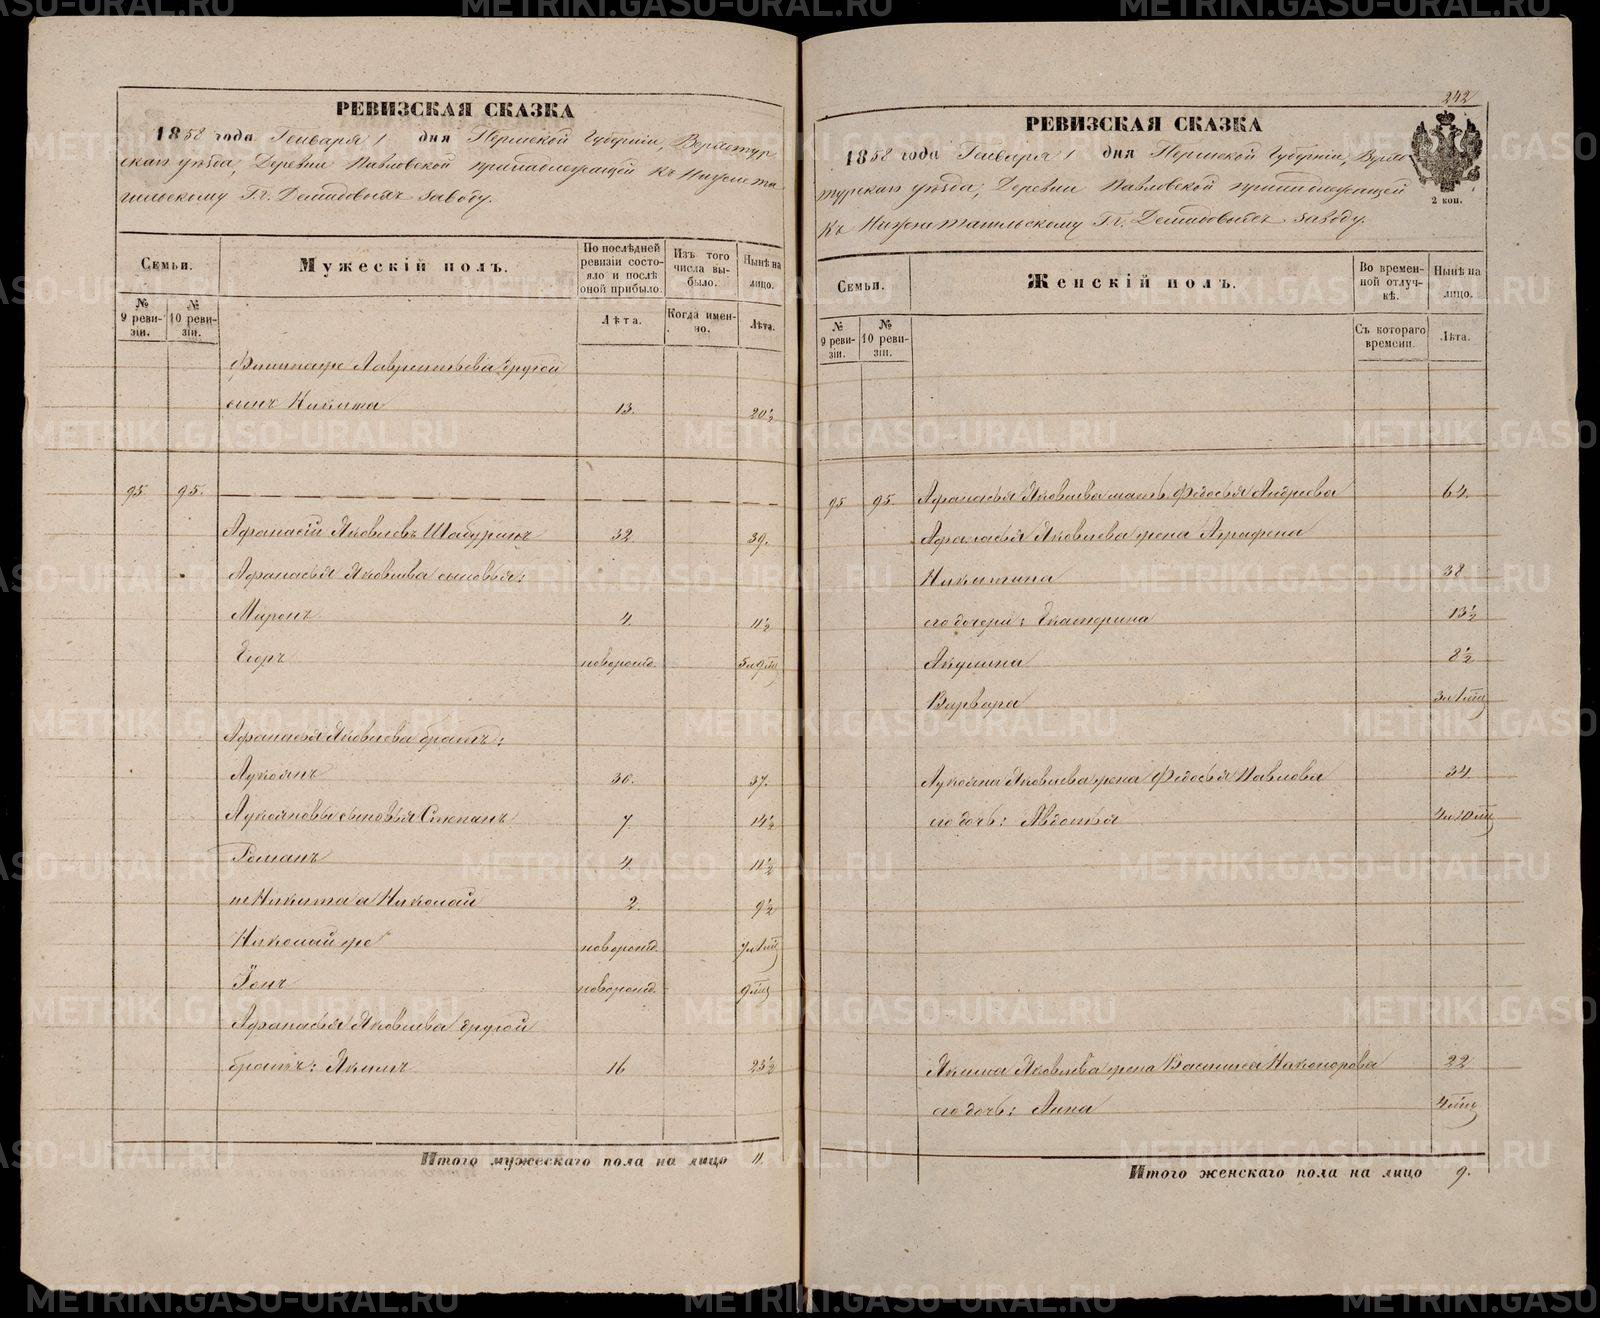 РЕВИЗСКАЯ СКАЗКА
1858 года Генваря 1 дня Пермской Губерніи, Верхотур-
скаго уѣзда, Деревни Павловской принадлежащей къ Нижнета-
гильскому Г.г. Демидовыхъ заводу.
Семьи.
Мужескій полъ.
По послѣдней ревизіи состояло и послѣ оной прибыло.
Изъ того числа выбыло.
Нынѣ на лицо.
№ 9 ревизіи.
№ 10 ревизіи.
Лѣта.
Когда именно.
Лѣта.
Лаврентьева другой
сынъ Никита 13. 20½
95 95.
Афанасій Яковлевъ Шабуринъ 32 39.
Афанасья Яковлева сыновья:
Миронъ 4. 11½
Егоръ новорожд. 5л 9мц
Афанасья Яковлева братъ:
Лукоянъ 30. 37.
Лукояновы сыновья Степанъ 7. 14½
Романъ 4. 11½
Никита а Николай 2. 9½
Николай же новорожд. 7л 1мц
новорожд. 9мц
Афанасья Яковлева другой
братъ: Якимъ 16 23½
Итого мужескаго пола на лицо 11.
242
РЕВИЗСКАЯ СКАЗКА
2 коп.
1858 года Генваря 1 дня Пермской Губерніи, Верхо-
турскаго уѣзда, Деревни Павловской принадлежащей
къ Нижнетагильскому Г.г. Демидовыхъ заводу.
Семьи.
Женскій полъ.
Во временной отлучкѣ.
Нынѣ на лицо.
№ 9 ревизіи.
№ 10 ревизіи.
Съ котораго времени.
Лѣта.
95 95. Афанасья Яковлева мать Федосья Андреева 64.
Афанасья Яковлева жена Аграфена
Никитина 38
его дочери: Екатерина 13½
Акулина 8½
Варвара 3л 1мц
Лукояна Яковлева жена Федосья Павлова 34
его дочь: Авдотья 4л 10мц
Якима Яковлева жена Василиса Никонорова 22
его дочь: Анна 4мц
Итого женскаго пола на лицо 9.
METRIKI.GASO-URAL.RU